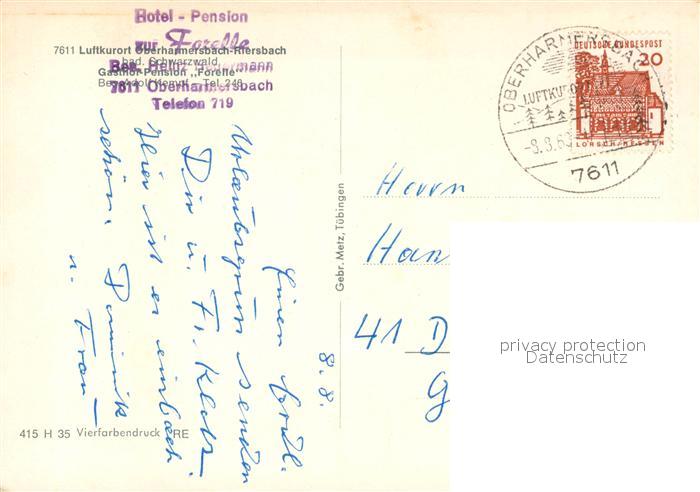 Hotel - Pension
zur Forelle
Bes. Heinz
7611 Oberharmersbach
Telefon 719
7611 Luftkurort Oberharmersbach-Riersbach
bad. Schwarzwald
Gasthof-Pension „Forelle"
Tel. 248
OBERHARMERSBACH
LUFTKURORT
7611
DEUTSCHE BUNDESPOST
20
LORSCH/HESSEN
8.8.
Einen herzl.
Urlaubsgruss senden
Dir u. Fr.
Hier ist es einfach
schön. Dominik
u. Frau
Gebr. Metz, Tübingen
Herrn
Han
41 D
G
privacy protection
Datenschutz
415 H 35 Vierfarbendruck RE